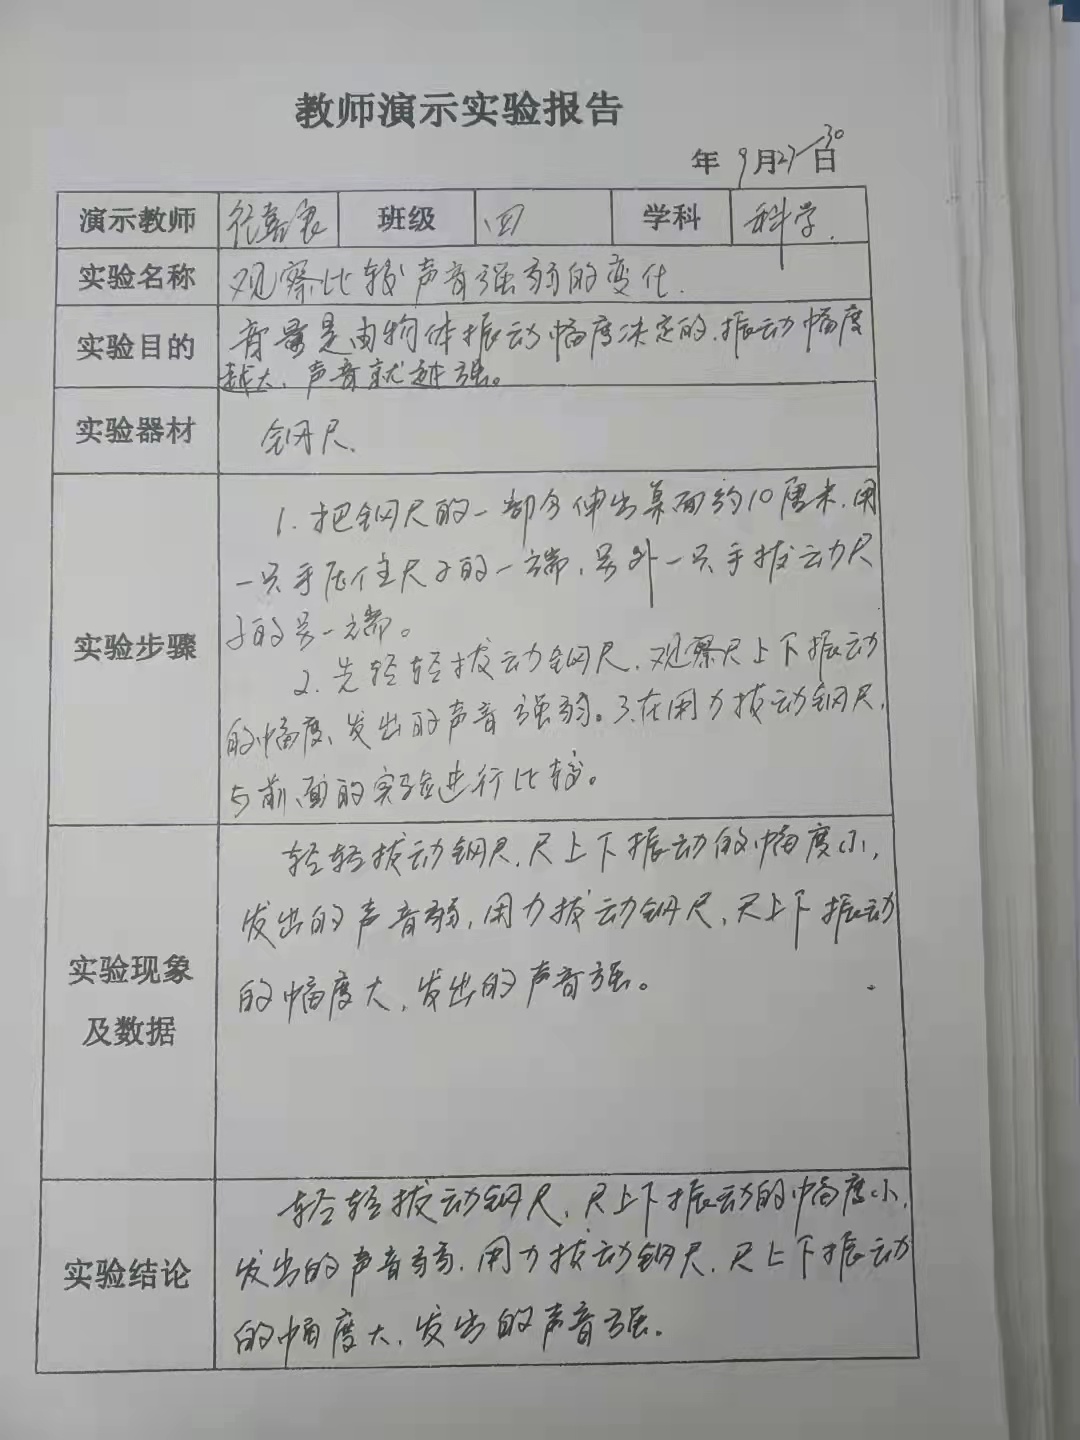 教师演示实验报告
年 9月27-30日
演示教师 班级 四 学科 科学.
实验名称 观察比较声音强弱的变化.
实验目的 音量是由物体振动幅度决定的.振动幅度
越大、声音就越强。
实验器材 钢尺.
1. 把钢尺的一部分伸出桌面约10厘米.用
一只手压住尺子的一端,另外一只手拔动尺
实验步骤 子的另一端。
2. 先轻轻拔动钢尺.观察尺上下振动
的幅度、发出的声音强弱。3.在用力拔动钢尺,
与前面的实验进行比较。
轻轻拔动钢尺.尺上下振动的幅度小,
发出的声音弱,用力拔动钢尺,尺上下振动
实验现象 的幅度大,发出的声音强。
及数据
轻轻拔动钢尺,尺上下振动的幅度小,
实验结论 发出的声音弱.用力拔动钢尺.尺上下振动
的幅度大.发出的声音强。